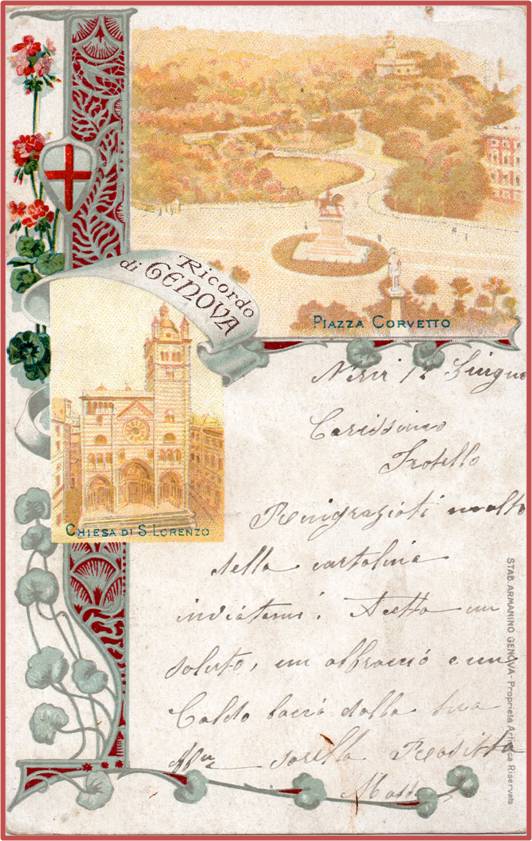 Ricordo
di GENOVA
PIAZZA CORVETTO
CHIESA DI S. LORENZO
Nervi 12 Giugno
Carissimo
Fratello
Rengrazioti molto
della cartolina
inviatami. Acetta un
saluto, un abbraccio e un
Caldo bacio dalla tua
sorella Rositta
STAB. ARMANINO GENOVA - Proprietà Artistica Riservata